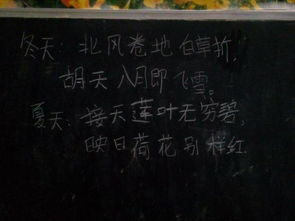 冬天：北风卷地白草折，
胡天八月即飞雪。
夏天：接天莲叶无穷碧，
映日荷花别样红